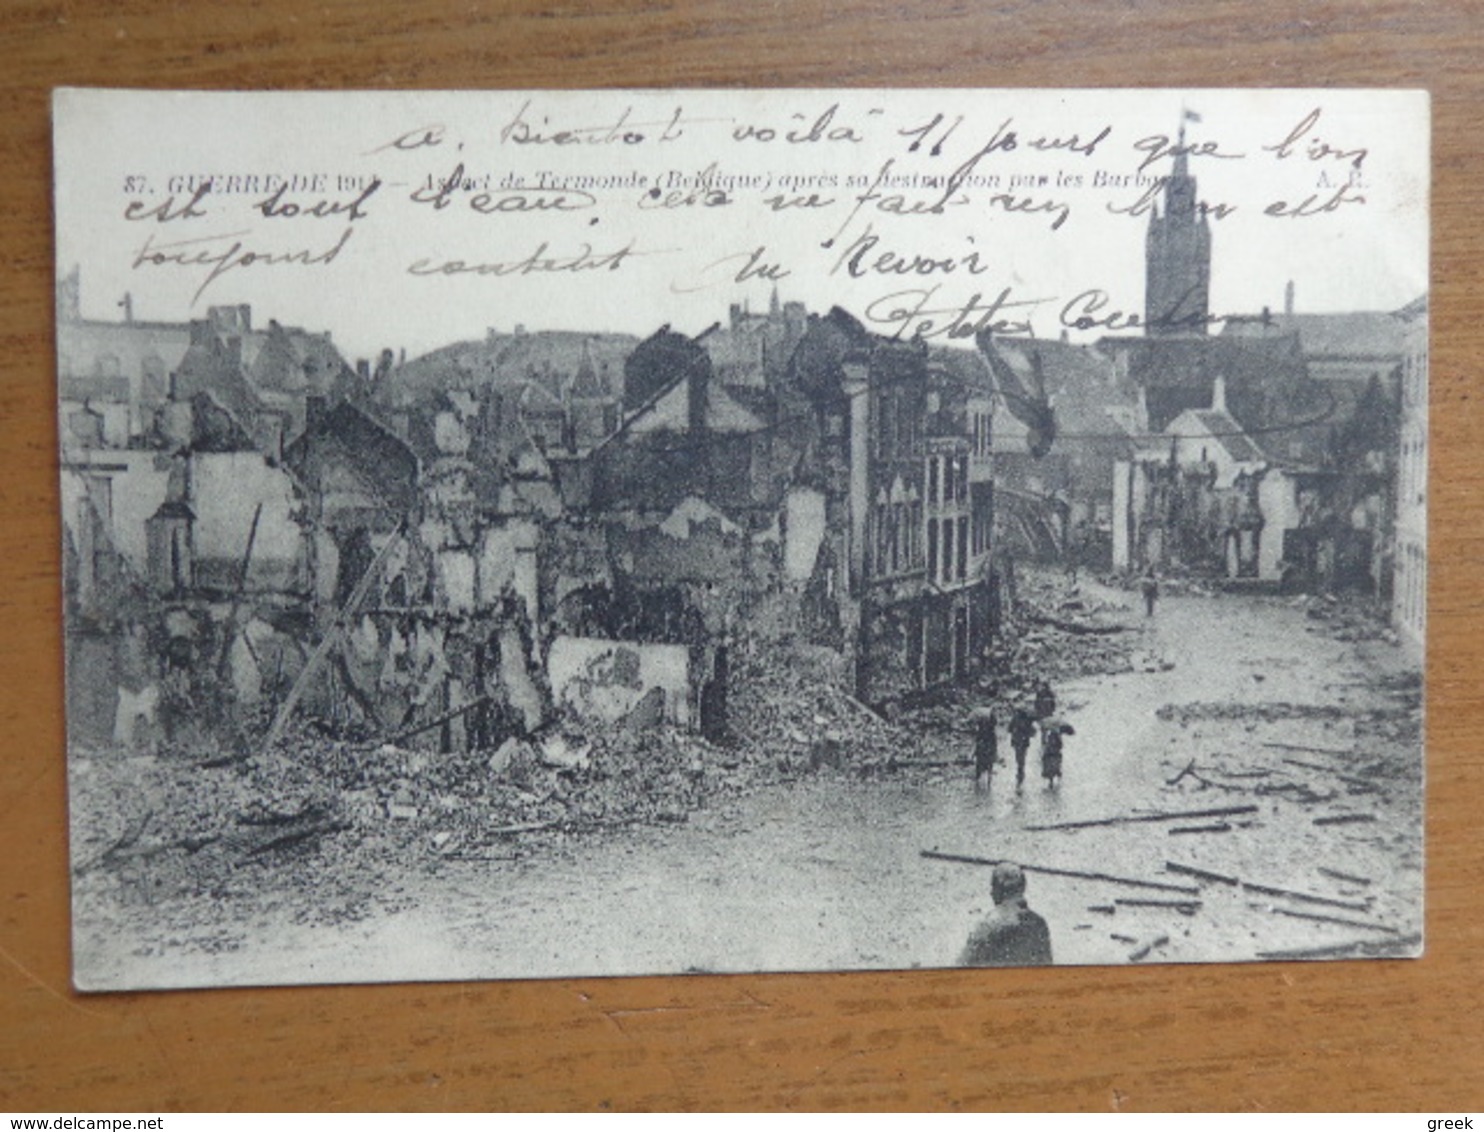 a. Bientot voilà 11 jours que l'on
87. GUERRE DE 1914 – Aspect de Termonde (Belgique) après sa destruction par les Barbares A. R.
est sout l'eau, cela ne fait rien l'on est
toujours content au Revoir
Petite
delcampe.net
greek